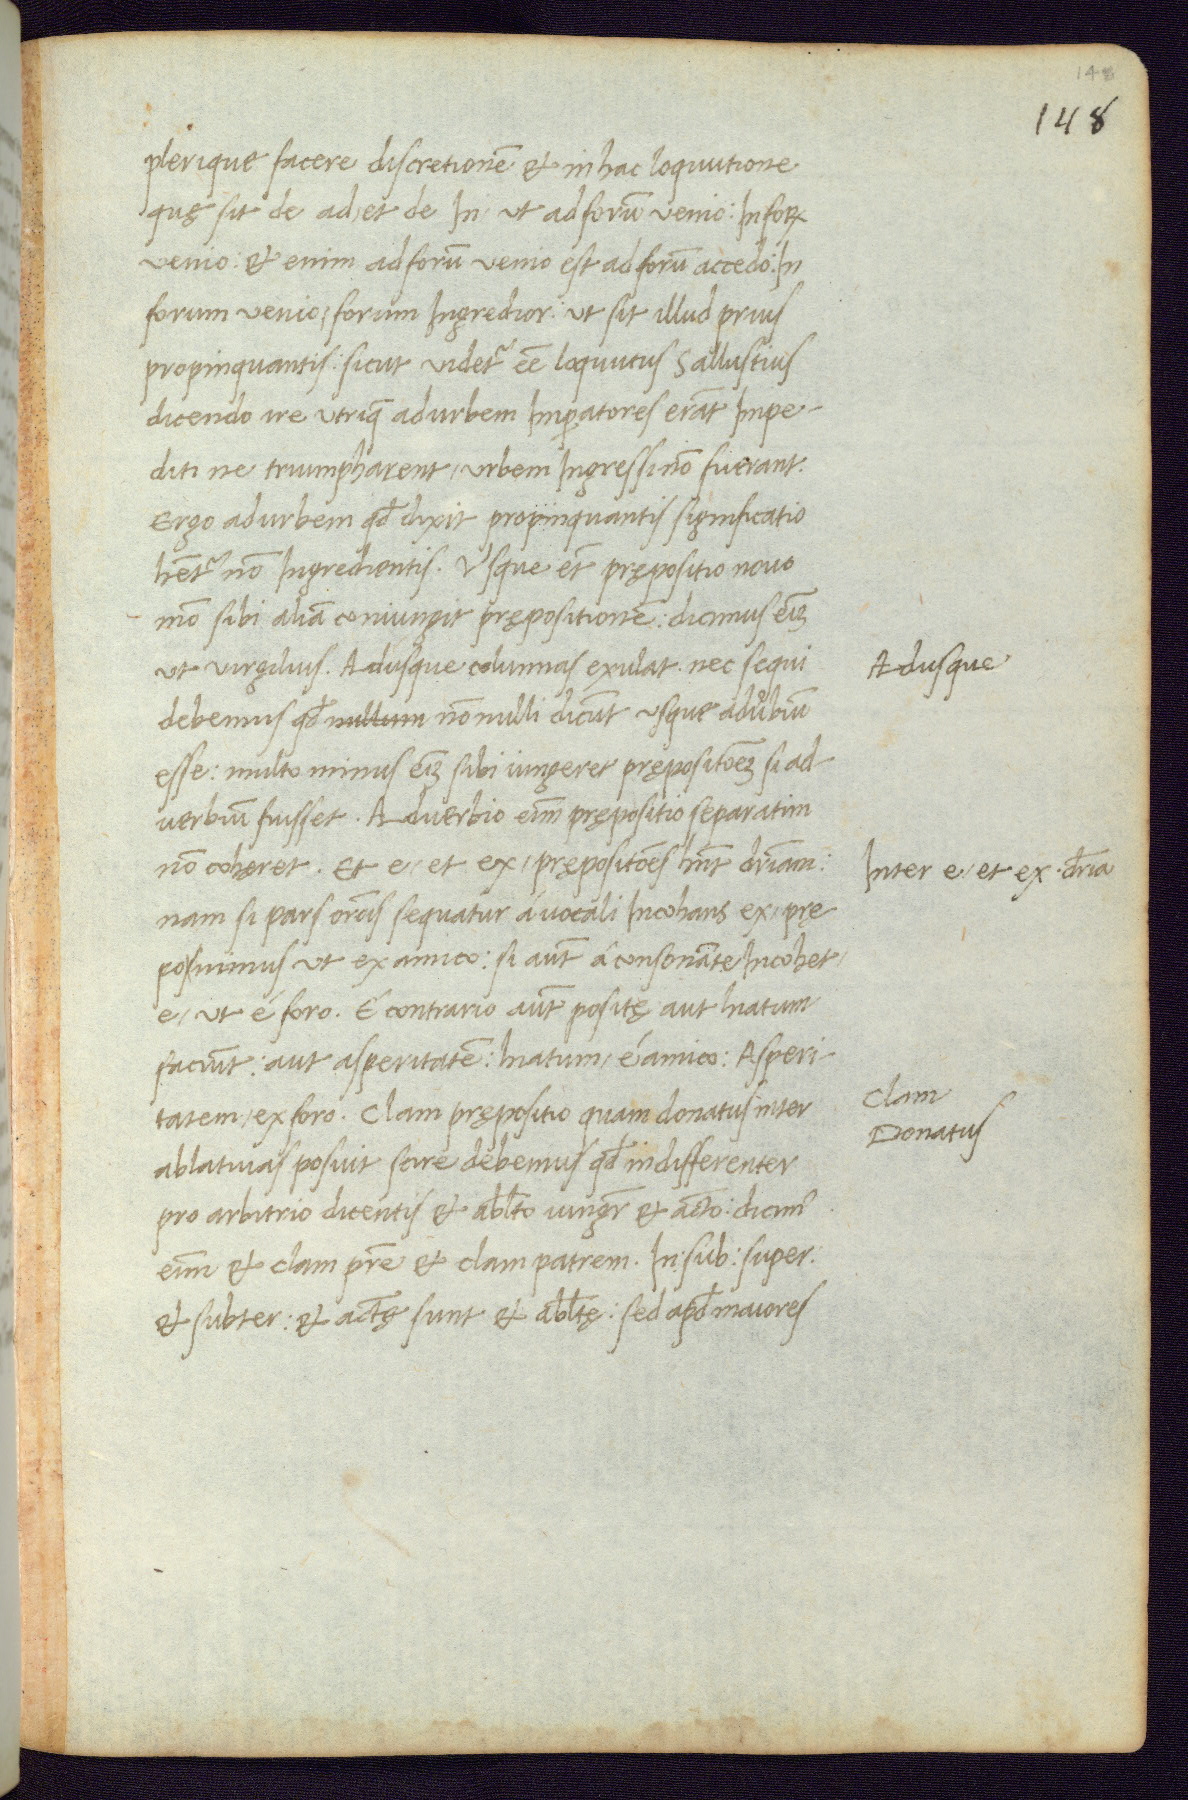 148
148
plerique facere discretionē & in hac loquutione
quę sit de ad, et de In, ut ad forū venio: In foꝝ
venio: & enim ad forū venio est ad forū accedo: In
forum venio, forum Ingredior: ut sit illud prius
propinquantis: sicut videt᷑ eē loquutus Sallustius
dicendo ire utriq̄ ad urbem Imp̱atores erāt Impe-
diti ne triumpharent, urbem Ingressi nō fuerant.
Ergo ad urbem qđ dixit propinquantis significatio
hēt᷑ nō Ingredientis. Vsque ēt prępositio nouo
mō sibi aliā coniungit prępositionē: dicimus eīꝫ
ut virgilius. Adusque columnas exulat. nec sequi
debemus qđ nullum nōnulli dicūt usque aduerbiū
esse: multo minus eīꝫ sibi iungeret prępositōeꝫ si ad-
uerbiū fuisset. Aduerbio eīm prępositio separatim
nō coheret. Et e, et ex, prępositōes hn̄t dr̄iam:
nam si pars orōis sequatur á vocali Incohans ex, prę
posuimus ut ex amico: si aūt á consonāte Incohet,
e, ut é foro. É contrario aūt positę aut hiatum
faciūt: aut asperitatē: hiatum, é amico: Asperi-
tatem, ex foro. Clam prępositio quam donatus inter
ablatiuas posuit scire debemus qđ indifferenter
pro arbitrio dicentis & abl̄to iungr̄ & actō: dicim᷒
eīm & clam pr̄e & clam patrem. In: sub: super:
& subter: & act̄ę sunt & abl̄tę: sed apđ maiores
Adusque
Inter e, et ex. dr̄ia
Clam
Donatus